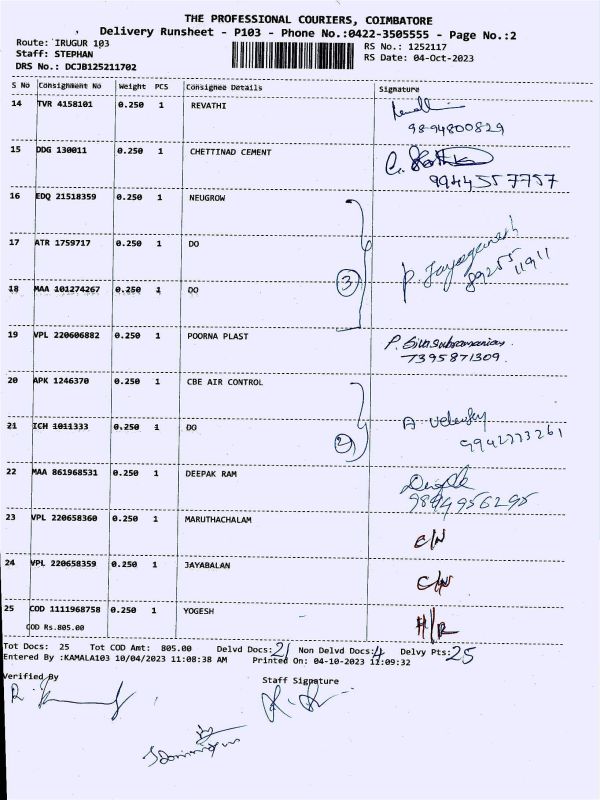 THE PROFESSIONAL COURIERS, COIMBATORE
Delivery Runsheet - P103 - Phone No.:0422-3505555 - Page No.:2
Route: IRUGUR 103 RS No.: 1252117
Staff: STEPHAN RS Date: 04-Oct-2023
DRS No.: DCJB125211702
S No Consignment No Weight PCS Consignee Details Signature
14 TVR 4158101 0.250 1 REVATHI
9894800829
15 DDG 130011 0.250 1 CHETTINAD CEMENT
9944557757
16 EDQ 21518359 0.250 1 NEUGROW
17 ATR 1759717 0.250 1 DO
P. Jayaganesh
89255 11911
18 MAA 101274267 0.250 1 DO
3
19 VPL 220606882 0.250 1 POORNA PLAST
P. Sivasubramanian
7395871309.
20 APK 1246370 0.250 1 CBE AIR CONTROL
21 ICH 1011333 0.250 1 DO
2
9942773261
22 MAA 861968531 0.250 1 DEEPAK RAM
9894956295
23 VPL 220658360 0.250 1 MARUTHACHALAM C/N
24 VPL 220658359 0.250 1 JAYABALAN C/N
25 COD 1111968758 0.250 1 YOGESH H/R
COD Rs.805.00
Tot Docs: 25 Tot COD Amt: 805.00 Delvd Docs: 21 Non Delvd Docs: 4 Delvy Pts: 25
Entered By :KAMALA103 10/04/2023 11:08:38 AM Printed On: 04-10-2023 11:09:32
Verified By Staff Signature